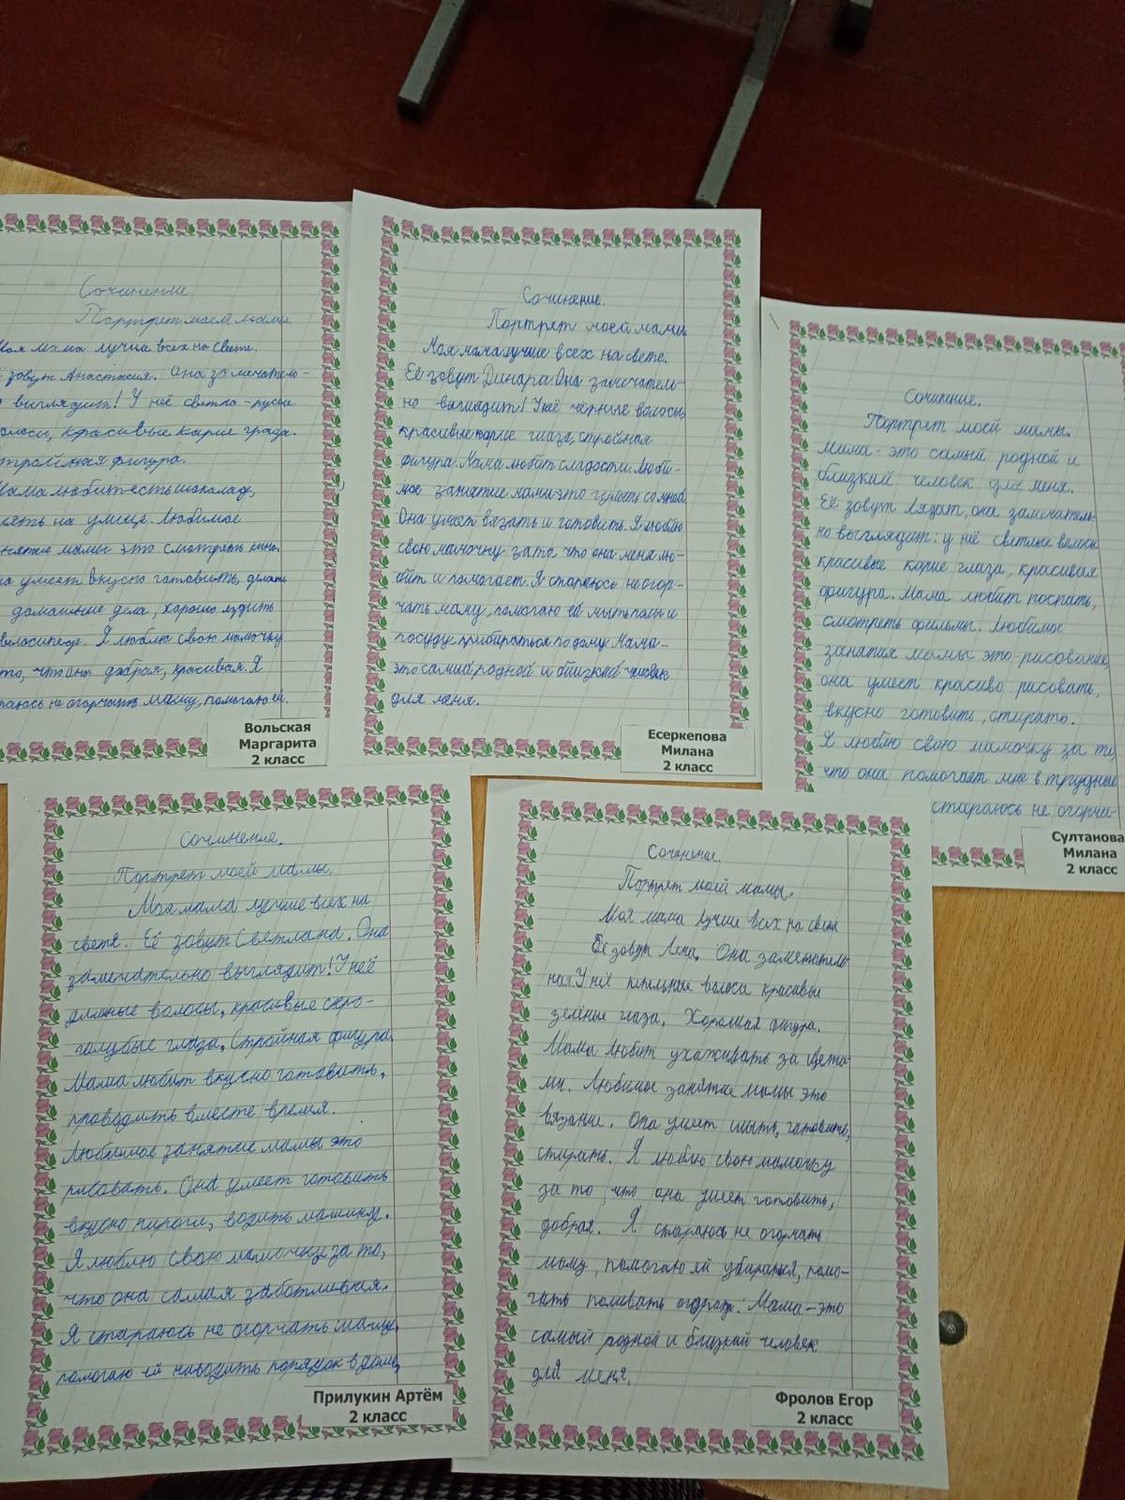 Сочинение
Портрет моей мамы
Моя мама лучше всех на свете.
зовут Анастасия. Она замечатель-
выглядит! У неё светло-русые
волосы, красивые карие глаза.
стройная фигура.
Мама любит есть шоколад,
гулять на улице. Любимое
занятие мамы это смотреть кино.
умеет вкусно готовить, делать
домашние дела, хорошо ездить
велосипеде. Я люблю свою мамочку
то, что она добрая, красивая. Я
стараюсь не огорчать маму, помогаю ей.
Вольская
Маргарита
2 класс
Сочинение.
Портрет моей мамы
Моя мама лучше всех на свете.
Её зовут Динара. Она замечатель-
но выглядит! У неё чёрные волосы,
красивые карие глаза, стройная
фигура. Мама любит сладости. Люби-
мое занятие мамы-это гулять со мной.
Она умеет вязать и готовить. Я люблю
свою мамочку за то что она меня лю-
бит и помогает. Я стараюсь не огор-
чать маму, помогаю ей мыть полы и
посуду, прибираться по дому. Мама-
это самый родной и близкий человек
для меня.
Есеркепова
Милана
2 класс
Сочинение.
Портрет моей мамы.
Мама - это самый родной и
близкий человек для меня.
Её зовут Лязат, она замечатель-
но выглядит: у неё светлые волосы
красивые карие глаза, красивая
фигура. Мама любит поспать,
смотреть фильмы. Любимое
занятия мамы это-рисование,
она умеет красиво рисовать,
вкусно готовить, стирать.
Я люблю свою мамочку за то,
что она помогает мне в трудные
стараюсь не огорча-
Султанова
Милана
2 класс
Сочинение.
Портрет моей мамы.
Моя мама лучше всех на
свете. Её зовут Светлана. Она
замечательно выглядит! У неё
длинные волосы, красивые серо-
голубые глаза, Стройная фигура.
Мама любит вкусно готовить,
проводить вместе время.
Любимое занятие мамы это
рисовать. Она умеет готовить
вкусно пироги, водить машину.
Я люблю свою мамочку за то,
что она самая заботливая.
Я стараюсь не огорчать маму,
помогаю ей наводить порядок в доме,
Прилукин Артём
2 класс
Сочинение.
Портрет моей мамы.
Моя мама лучше всех на свете
Её зовут Лена. Она замечатель
ная У неё волоса красивые
зелёные глаза. Хорошая фигура.
Мама любит ухаживать за цвета
ми. Любимое занятие мамы это
вязание. Она умеет шыть, готовить,
стирать. Я люблю свою мамочку
за то, что она умеет готовить,
добрая. Я стараюсь не огорчать
маму, помогаю ей убараться, помо-
гать поливать огород. Мама-это
самый родной и близкий человек
для меня.
Фролов Егор
2 класс